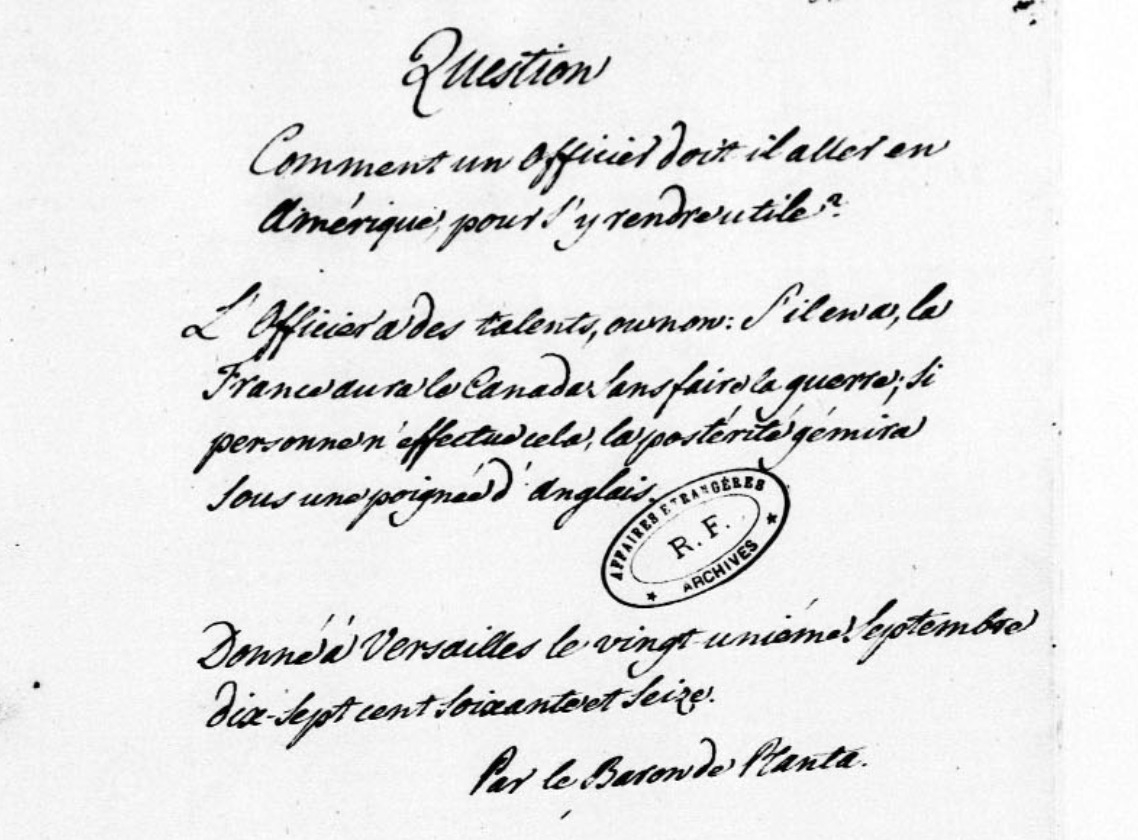 Question
Comment un Officier doit il aller en
Amérique, pour s'y rendre utile?
L'Officier a des talents, ou non: S'il en a, la
France aura le Canada sans faire la guerre; si
personne n'effectue cela, la postérité gémira
sous une poignée d'anglais.
AFFAIRES ETRANGÈRES
R. F.
ARCHIVES
Donné à Versailles le vingt-unième Septembre
dix-sept cent soixante et seize.
Par le Baron de Planta.